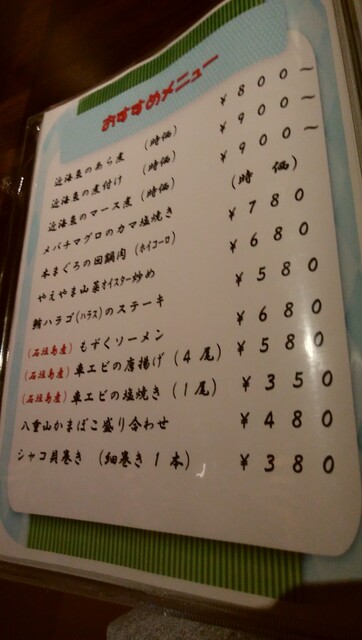 おすすめメニュー
近海魚のあら煮 (時価) ¥800～
近海魚の煮付け (時価) ¥900～
近海魚のマース煮 (時価) ¥900～
メバチマグロのカマ塩焼き (時価)
本まぐろの回鍋肉(ホイコーロ) ¥780
やえやま山菜オイスター炒め ¥680
鮪ハラゴ(ハラス)のステーキ ¥580
(石垣島産) もずくソーメン ¥680
(石垣島産) 車エビの唐揚げ (4尾) ¥580
(石垣島産) 車エビの塩焼き (1尾) ¥350
八重山かまぼこ盛り合わせ ¥480
シャコ貝巻き (細巻き1本) ¥380